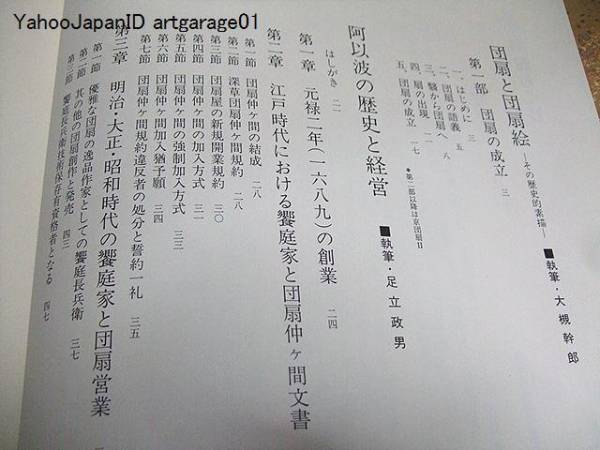 YahooJapanID artgarage01
団扇と団扇絵 ―その歴史的素描― ■執筆・大槻幹郎
第一部 団扇の成立 三
一、はじめに 三
二、団扇の語義 五
三、翳から団扇へ 八
四、扇の出現 一一
五、団扇の成立 一七
●第二部以降は京団扇II
阿以波の歴史と経営 ■執筆・足立政男
はしがき 二一
第一章 元禄二年(一六八九)の創業 二四
第二章 江戸時代における饗庭家と団扇仲ヶ間文書
第一節 団扇仲ヶ間の結成 二八
第二節 深草団扇仲ヶ間規約 二八
第三節 団扇屋の新規開業規約 三〇
第四節 団扇仲ヶ間の加入方式 三一
第五節 団扇仲ヶ間の強制加入方式 三三
第六節 団扇仲ヶ間加入猶予願 三四
第七節 団扇仲ヶ間規約違反者の処分と誓約一礼 三五
第三章 明治・大正・昭和時代の饗庭家と団扇営業
第一節 優雅な団扇の逸品作家としての饗庭長兵衛 三七
第二節 其の他の団扇創作と発売 四三
第三節 饗庭長兵衛技術保存有資格者となる 四七